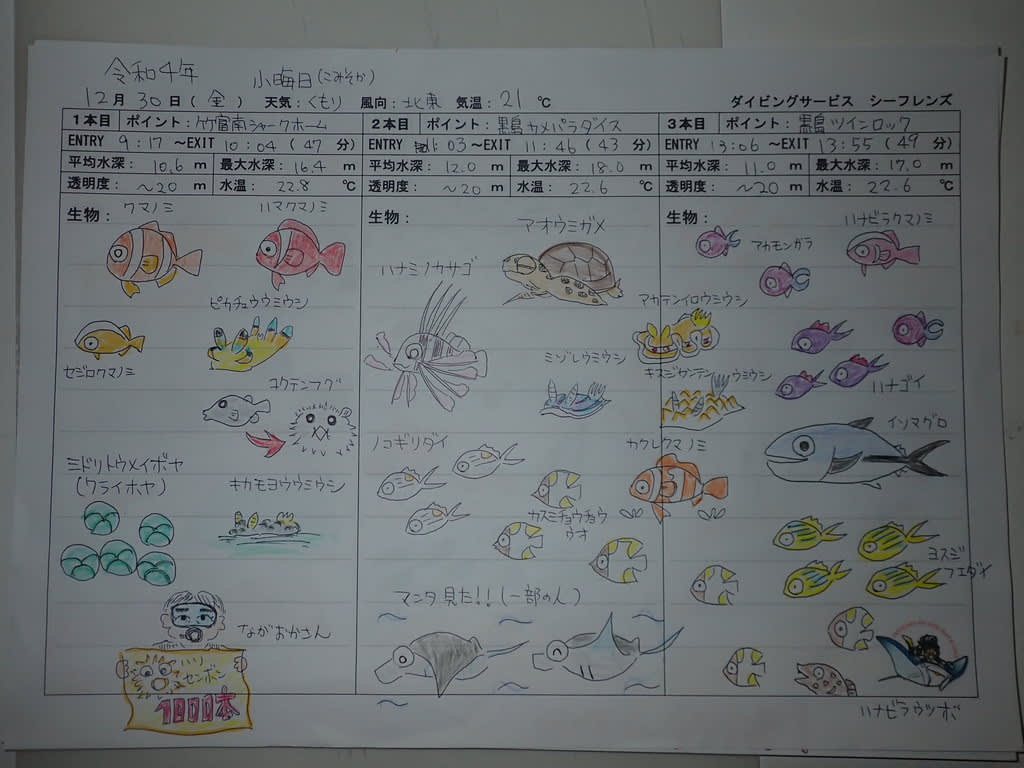 令和4年 小晦日(こみそか)
12月30日(金) 天気:くもり 風向:北東 気温:21℃ ダイビングサービス シーフレンズ
1本目 ポイント:竹富南シャークホーム
ENTRY 9:17 ~EXIT 10:04 (47分)
平均水深: 10.6 m 最大水深: 16.4 m
透明度: ~20 m 水温: 22.8 ℃
生物:
クマノミ
ハマクマノミ
ピカチュウウミウシ
セジロクマノミ
コクテンフグ
ミドリトウメイボヤ
(クライホヤ)
キカモヨウウミウシ
ながおかさん
ハリ
センボン
1000本
2本目 ポイント:黒島カメパラダイス
:03 ~EXIT 11:46 (43分)
平均水深: 12.0 m 最大水深: 18.0 m
透明度: ~20 m 水温: 22.6 ℃
生物:
アオウミガメ
ハナミノカサゴ
ミゾレウミウシ
ノコギリダイ
カスミチョウチョウ
ウオ
カクレクマノミ
マンタ見た!!(一部の人)
3本目 ポイント:黒島ツインロック
ENTRY 13:06 ~EXIT 13:55 (49分)
平均水深: 11.0 m 最大水深: 17.0 m
透明度: ~20 m 水温: 22.6 ℃
生物:
ハナビラクマノミ
アカモンガラ
アカテンイロウミウシ
キスジカンテンウミウシ
ハナゴイ
イソマグロ
ヨスジ
フエダイ
ハナビラウツボ